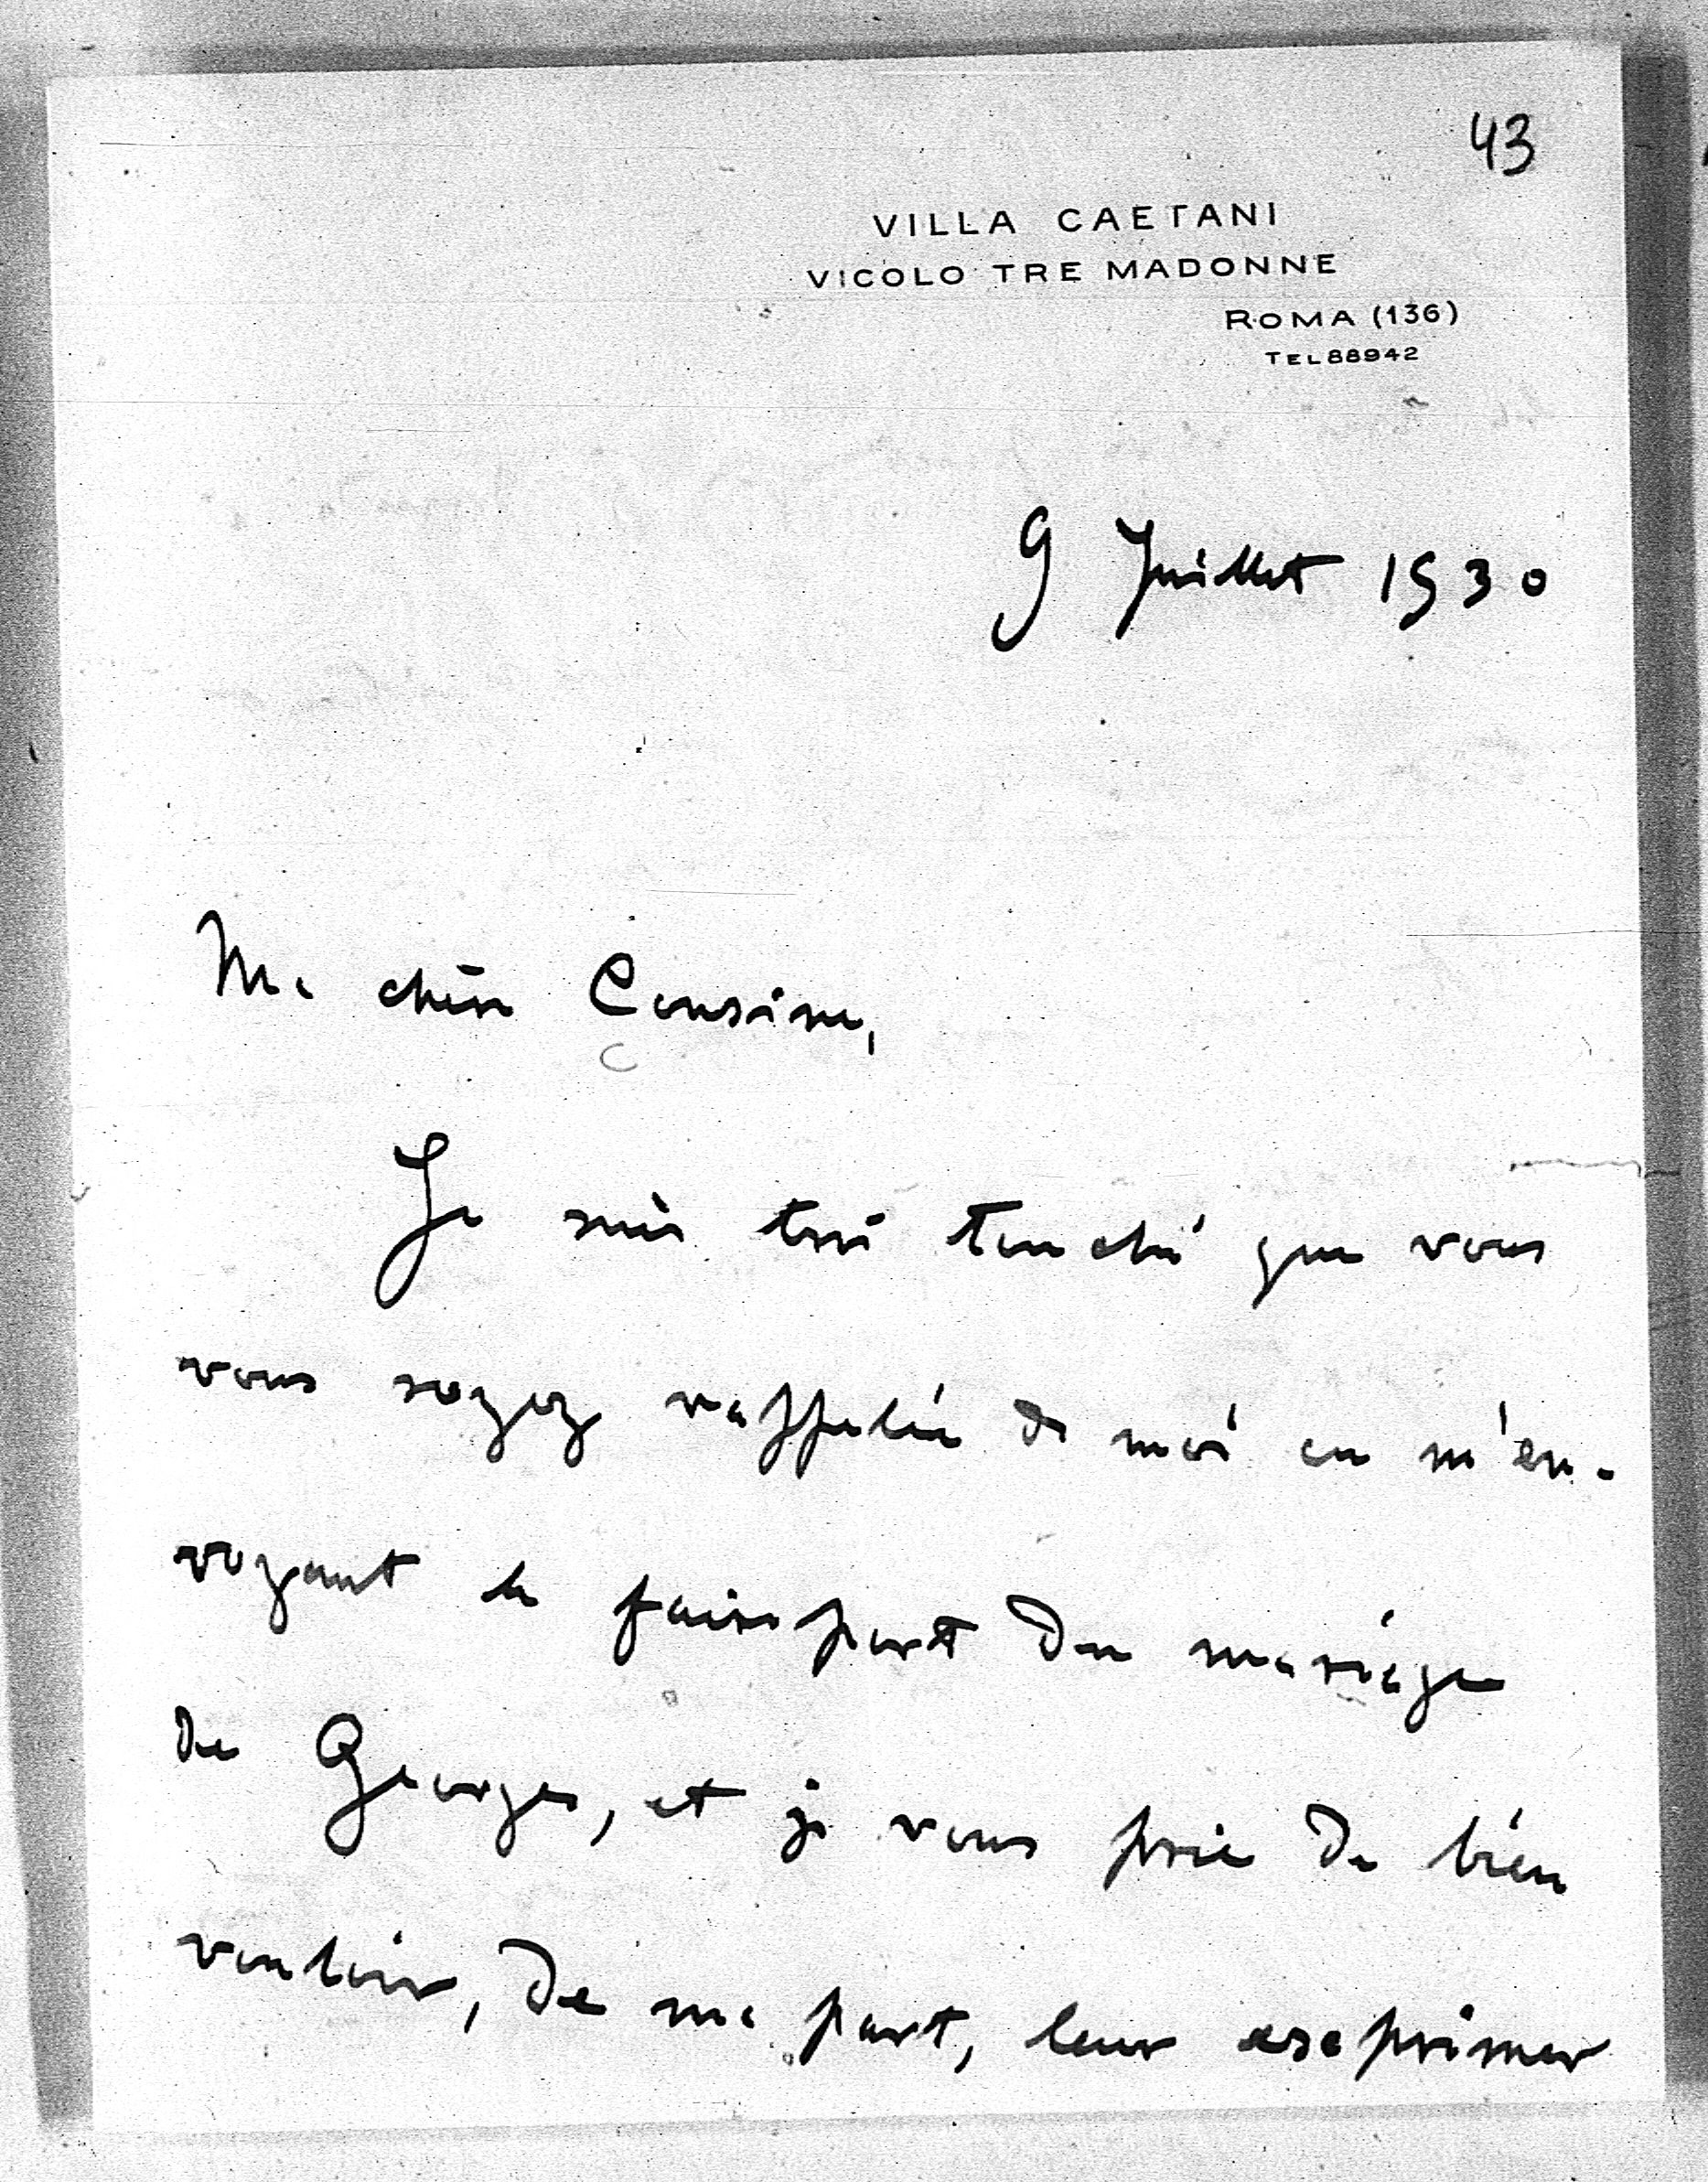 43
VILLA CAETANI
VICOLO TRE MADONNE
ROMA (136)
TEL 88942
9 Juillet 1930
Ma chère Cousine,
Je suis très touché que vous
vous soyez rappelée de moi en m'en-
voyant le faire part du mariage
de Georges, et je vous prie de bien
vouloir, de ma part, leur exprimer